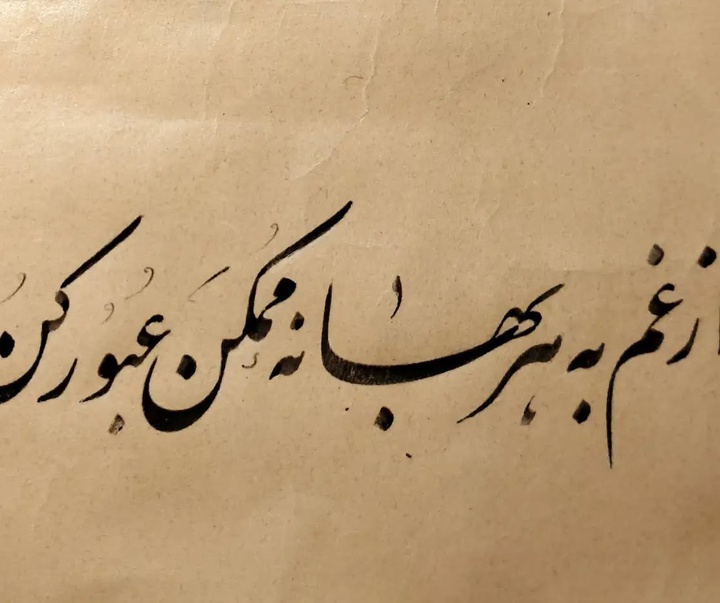 از غم به هر بهانهٔ ممکن عبور کن